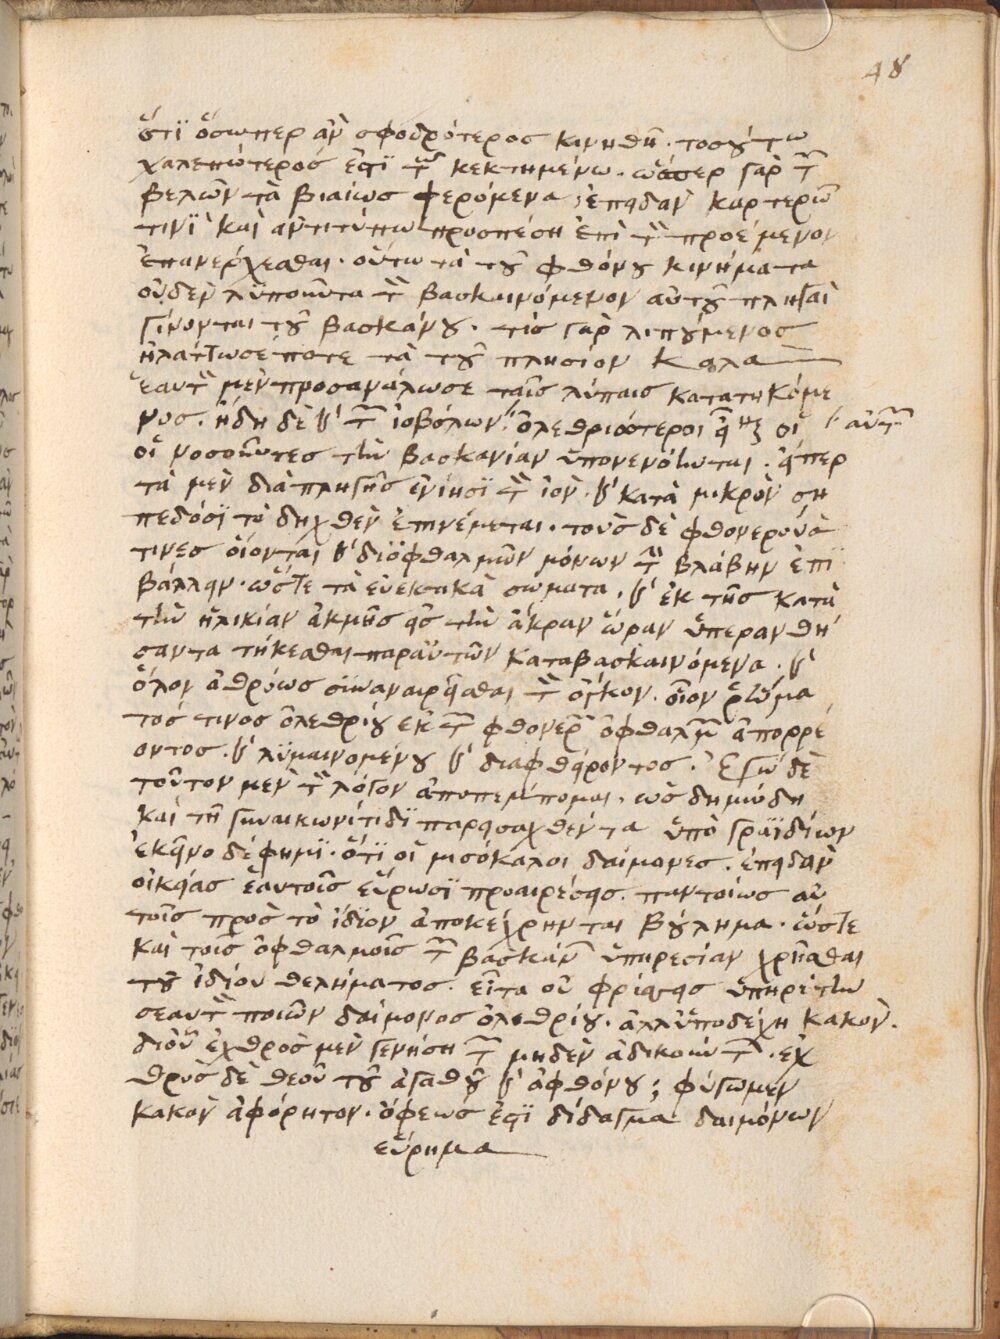 48
ὅτι ὅσωπερ ἂν σφοδρότερος κινηθῆ. τοσούτω
χαλεπώτερός ἐστι τῶ κεκτημένω. ὥσπερ γὰρ τῶν
βελῶν τὰ βιαίως φερόμενα, ἐπειδὰν καρτερῶ
τινὶ καὶ αντιτύπω προσπέση ἐπὶ τὸν προέμενον
ἐπανέρχεσθαι. οὕτω τὰ τοῦ φθόνου κινήματα
οὐδὲν λυποῦντα τὸν βασκαινόμενον αὐτοῦ πληγαὶ
γίνονται τοῦ βασκάνου. τίς γὰρ λυπούμενος
ἠλάττωσέ ποτε τὰ τοῦ πλησίον καλα
ἑαυτὸν μὲν προσανάλωσε ταῖς λύπαις κατατηκόμε
νος. ἤδη δὲ καὶ τῶν ἰοβόλων ὀλεθριώτεροι οἱ αὐτῶν
οἱ νοσοῦντες τὴν βασκανίαν ὑπονενόηνται. εἴπερ
τὰ μὲν διὰ πληγῆς ἐνίησι τὸν ἰὸν. καὶ κατὰ μικρὸν ση
πεδόσι τὸ δηχθὲν ἐπινέμεται. τοὺς δὲ φθονεροὺς
τινες οἴονται καὶ δι ὀφθαλμῶν μόνων τὴν βλάβην ἐπι
βάλλειν. ὥστε τὰ εὐεκτικὰ σώματα, καὶ ἐκ τῆς κατὰ
τὴν ἡλικίαν ἀκμῆς εἰς τὴν ἄκραν ὥραν ὑπερανθή
σαντα τήκεσθαι παρ αὐτῶν καταβασκαινόμενα. καὶ
ὅλον ἀθρόως συναναιρεῖσθαι τὸν ὄγκον. οἷον ῥεύμα
τός τινος ὀλεθρίου ἐκ τῶν φθονερῶν ὀφθαλμῶν ἀπορρέ
οντος. καὶ λυμαινομένου καὶ διαφθείροντος. Ἐγὼ δὲ
τοῦτον μὲν τὸν λόγον ἀποπέμπομαι, ὡς δημώδη
καὶ τῆ γυναικωνίτιδι παρεισαχθέντα ὑπὸ γραϊδίων
ἐκεῖνο δέ φημι. ὅτι οἱ μισόκαλοι δαίμονες. ἐπειδὰν
οἰκείας ἑαυτοῖς εὕρωσι προαιρέσεις. παντοίως αὐ
τοῖς πρὸς τὸ ἴδιον ἀποκέχρηνται βούλημα. ὥστε
καὶ τοῖς ὀφθαλμοῖς τῶν βασκάνων ὑπηρεσίαν χρῆσθαι
τοῦ ἰδίου θελήματος. εἶτα οὐ φρίττεις ὑπηρέτην
σεαυτὸν ποιῶν δαίμονος ὀλεθρίου. ἀλλ ὑποδέχη κακὸν.
δι οὗ ἐχθρὸς μὲν γενήση τῶν μηδὲν ἀδικούντων. ἐχ
θρὸς δὲ θεοῦ τοῦ ἀγαθοῦ καὶ ἀφθόνου; φύγωμεν
κακὸν ἀφόρητον. ὄφεως ἐστι δίδαγμα δαιμόνων
εὕρημα